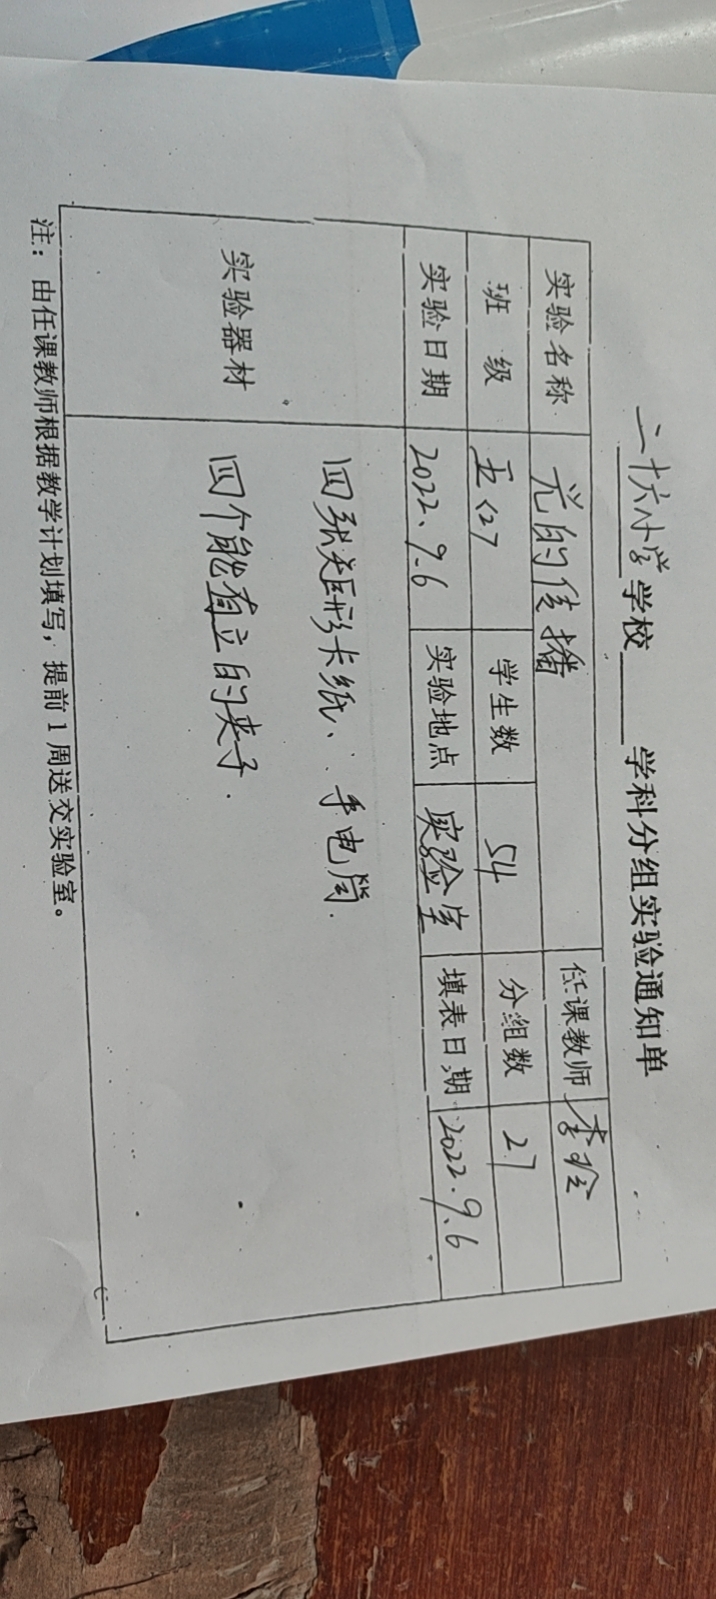 二十六小学学校____学科分组实验通知单
实验名称 光的传播 任课教师 李玲
班 级 五(2) 学生数 54 分组数 27
实验日期 2022、9.6 实验地点 实验室 填表日期 2022.9.6
实验器材
四张矩形卡纸、手电筒.
四个能直立的夹子.
注：由任课教师根据教学计划填写，提前1周送交实验室。